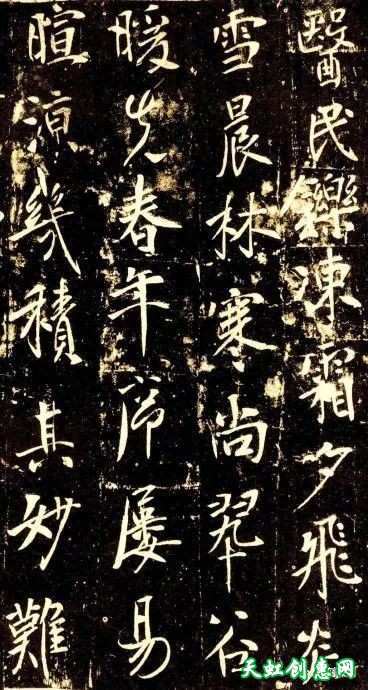 醫民鑠凍霜夕飛炎
雪晨林寒尚翠谷
暖先春年序屢易
暄涼幾積其妙難
天虹创意网